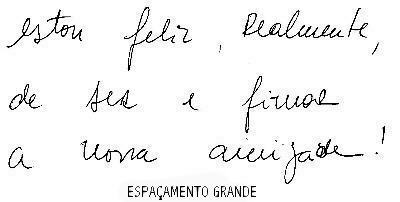 estou feliz, Realmente,
de ser e firmar
a nossa amizade!
ESPAÇAMENTO GRANDE